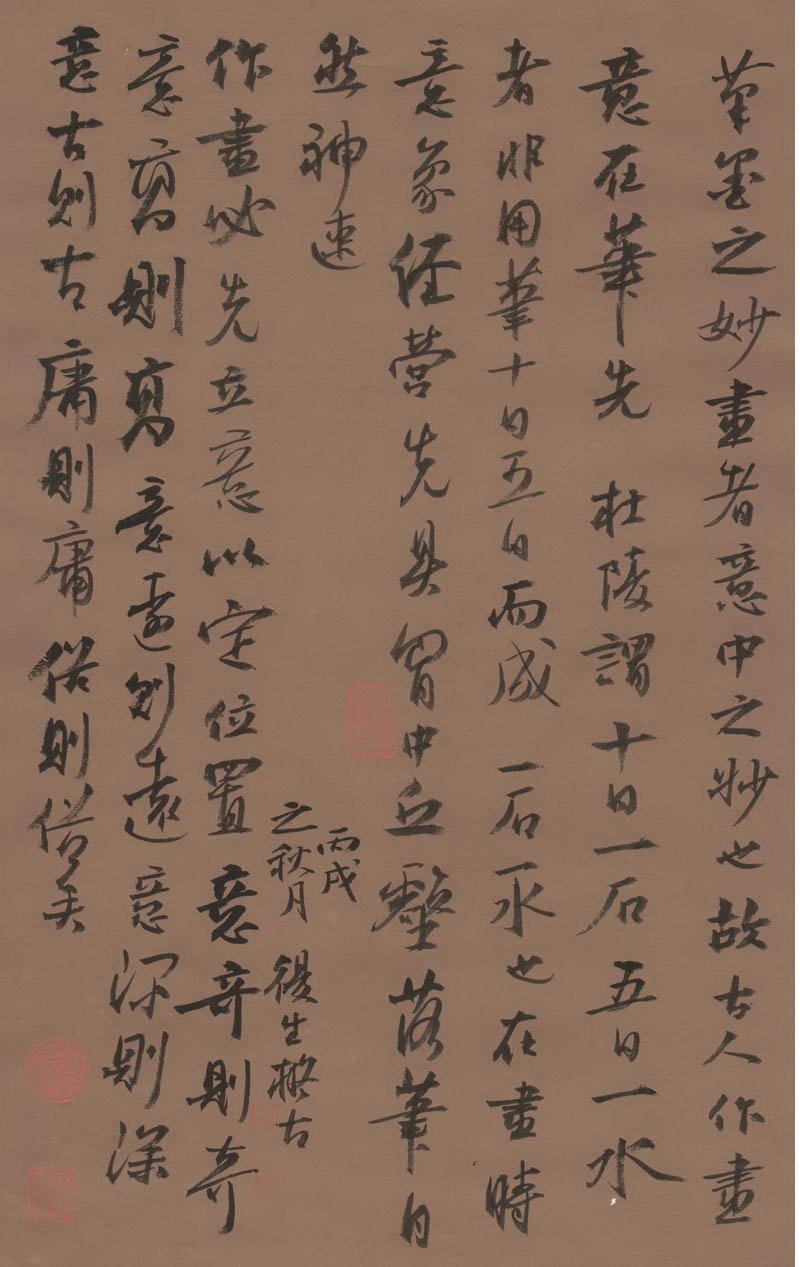 筆墨之妙畫者意中之妙也故古人作畫
意在筆先 杜陵謂十日一石五日一水
者非用筆十日五日而成 一石一水也在畫時
意象经营先具胷中丘壑落筆自
然神速
作畫必先立意以定位置意奇則奇
意高則高意遠則遠意深則深
意古則古庸則庸俗則俗矣
丙戌
之秋月 後生撫古